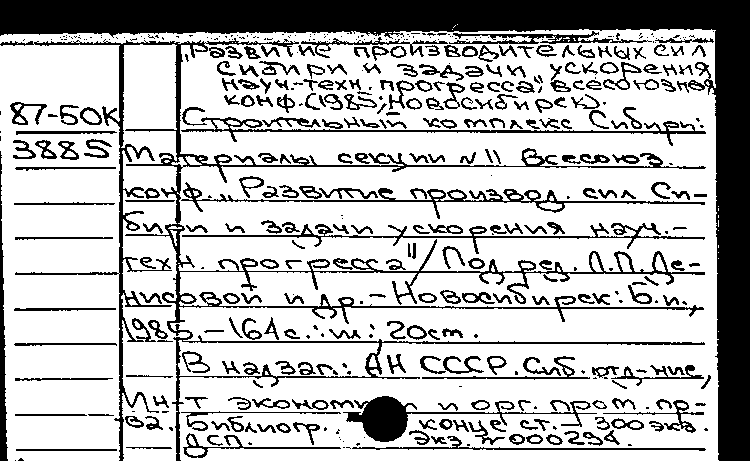 „Развитие производительных сил
Сибири и задачи ускорения
науч.-техн. прогресса", всесоюзная
конф. (1985; Новосибирск).
87-50К Строительный комплекс Сибири:
3885 Материалы секции N 11 Всесоюз.
конф. „Развитие производ. сил Си-
бири и задачи ускорения науч.-
техн. прогресса" / Под ред. Л.П. Де-
нисовой и др. – Новосибирск: Б.и.,
1985. – 164 с.: ил.; 20 см.
В надзаг.: АН СССР. Сиб. отд-ние,
Ин-т экономики и орг. пром. пр-
ва. Библиогр. конце ст. – 300 экз.
ДСП. Экз. N 000294.